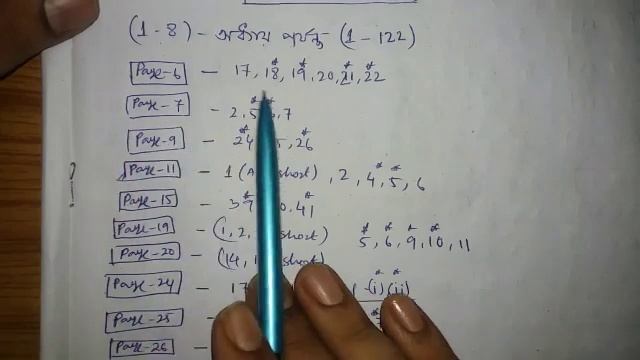 (1-8) - অধ্যায় পর্যন্ত (1-122)
Page-6 - 17, 18*, 19*, 20, 21*, 22*
Page-7 - 2, 5*, 7
Page-9 - 24*, 26*
Page-11 - 1 ( short), 2, 4*, 5*, 6
Page-15 - 39*, 41*
Page-19 - (1, 2, short) 5*, 6*, 9*, 10*, 11
Page-20 - (14, short)
Page-24 - 17 (i)* (ii)*
Page-25 -
Page-26 -